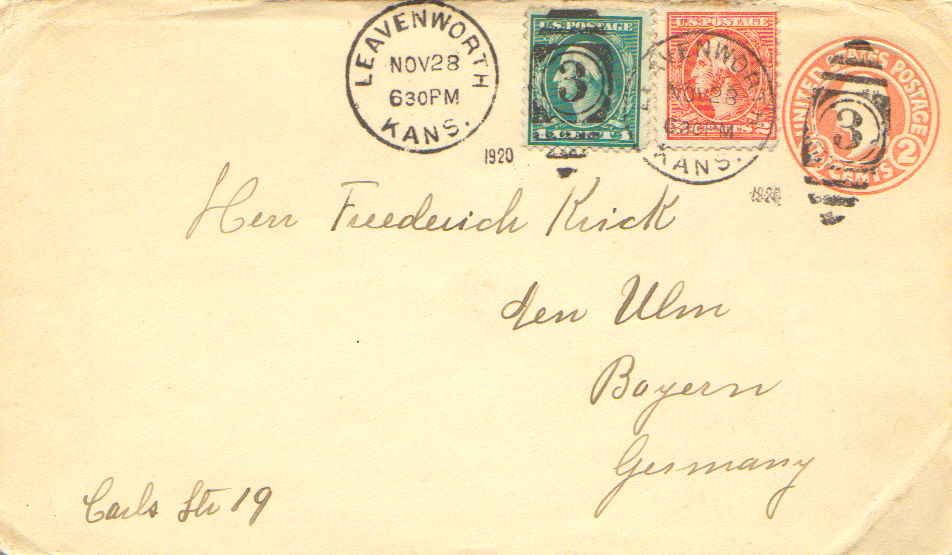 LEAVENWORTH
NOV 28
630PM
KANS.
1920
U.S. POSTAGE
3
U.S. POSTAGE
2 CENTS 2
LEAVENWORTH
NOV 28
630PM
KANS.
1920
UNITED STATES POSTAGE
3
2 CENTS 2
Herr Frederich Krick
den Ulm
Bayern
Germany
Carls Str 19